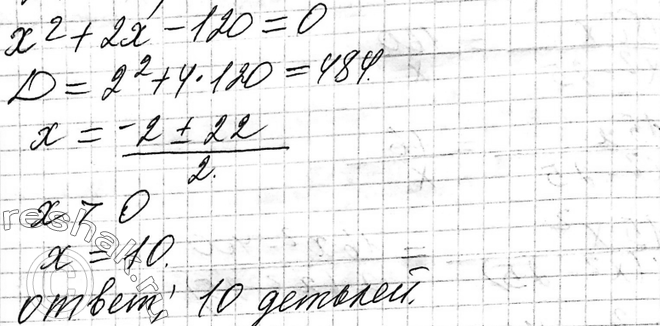 x² + 2x - 120 = 0
D = 2² + 4·120 = 484.
x = (-2 ± 22)/2.
x > 0
x = 10.
ответ; 10 деталей.
reshak.ru